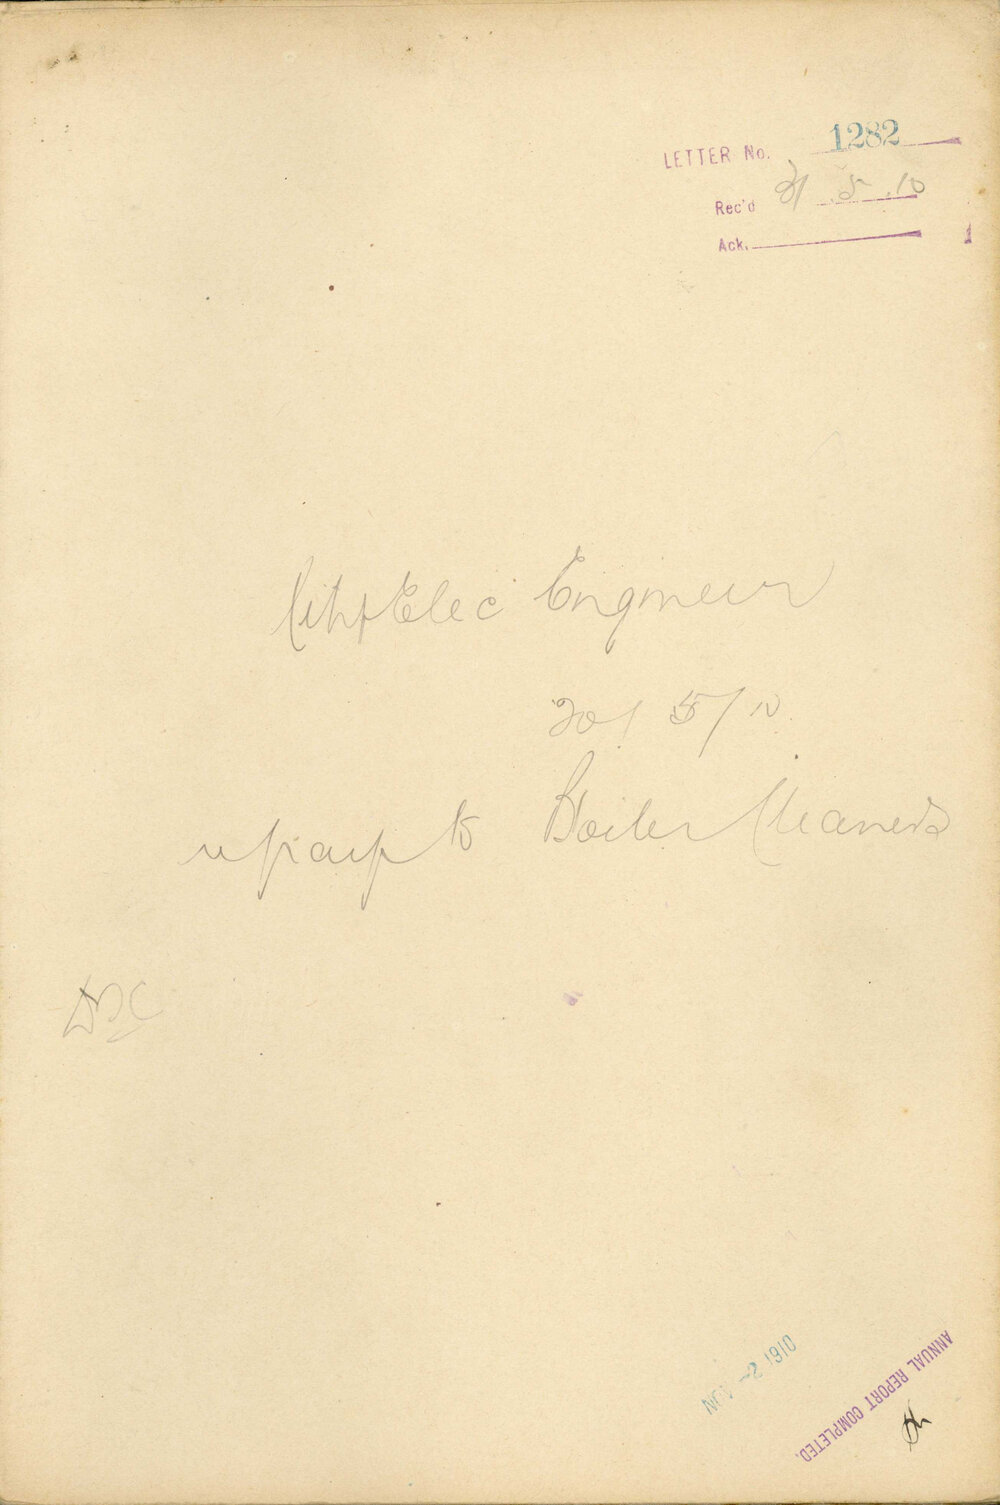 LETTER No. 1282
Rec'd 31.5.10
Ack.
City Elec Engineer
20/5/10
re pay to Boiler Cleaners
1910
ANNUAL REPORT COMPLETED.